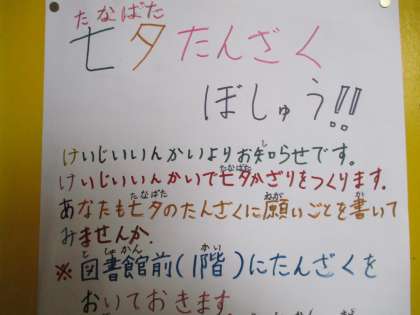 たなばた
七夕たんざく
ぼしゅう!!
けいじいいんかいよりお知らせです。
けいじいいんかいで七夕かざりをつくります。
あなたも七夕のたんざくに願いごとを書いて
みませんか。
※図書館前(1階)にたんざくを
おいておきます